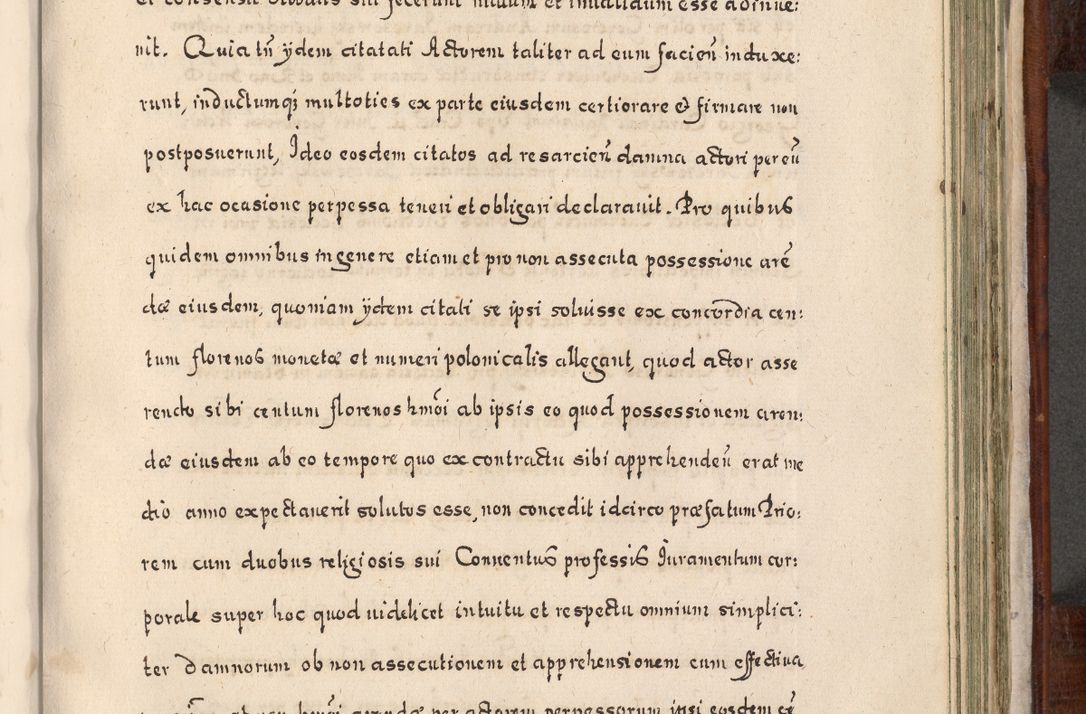 et consensu duobus sui fecerunt nullum et inualidum esse adinue:
nit. Quia tñ ÿdem citatati Actorem taliter ad eum facieñ induxe:
runt, inductumq; multoties ex parte eiusdem certiorare et firmare non
postposuerunt, Ideo eosdem citatos ad resarcieñ damna actori per eũ
ex hac ocasione perpessa teneri et obligari declarauit. Pro quibus
quidem omnibus in genere etiam et pro non assecuta possessione arẽ
dæ eiusdem, quoniam ÿdem citati se ipsi soluisse ex concordia cen:
tum florenos monetæ et numeri polonicalis allegant, quod actor asse
rendo sibi centum florenos hmõi ab ipsis eo quod possessionem aren:
dæ eiusdem ab eo tempore quo ex contractu sibi apprehendeñ erat me
dio anno expectauerit solutos esse, non concedit idcirco præfatum Prio:
rem cum duobus religiosis sui Conuentus professis Iuramentum cor:
porale super hoc quod uidelicet intuitu et respectu omnium simplici:
ter damnorum ob non assecutionem et apprehensionem eum effectiua
hmõi arendæ per actorem perpessorum ipsi eosdem cẽ